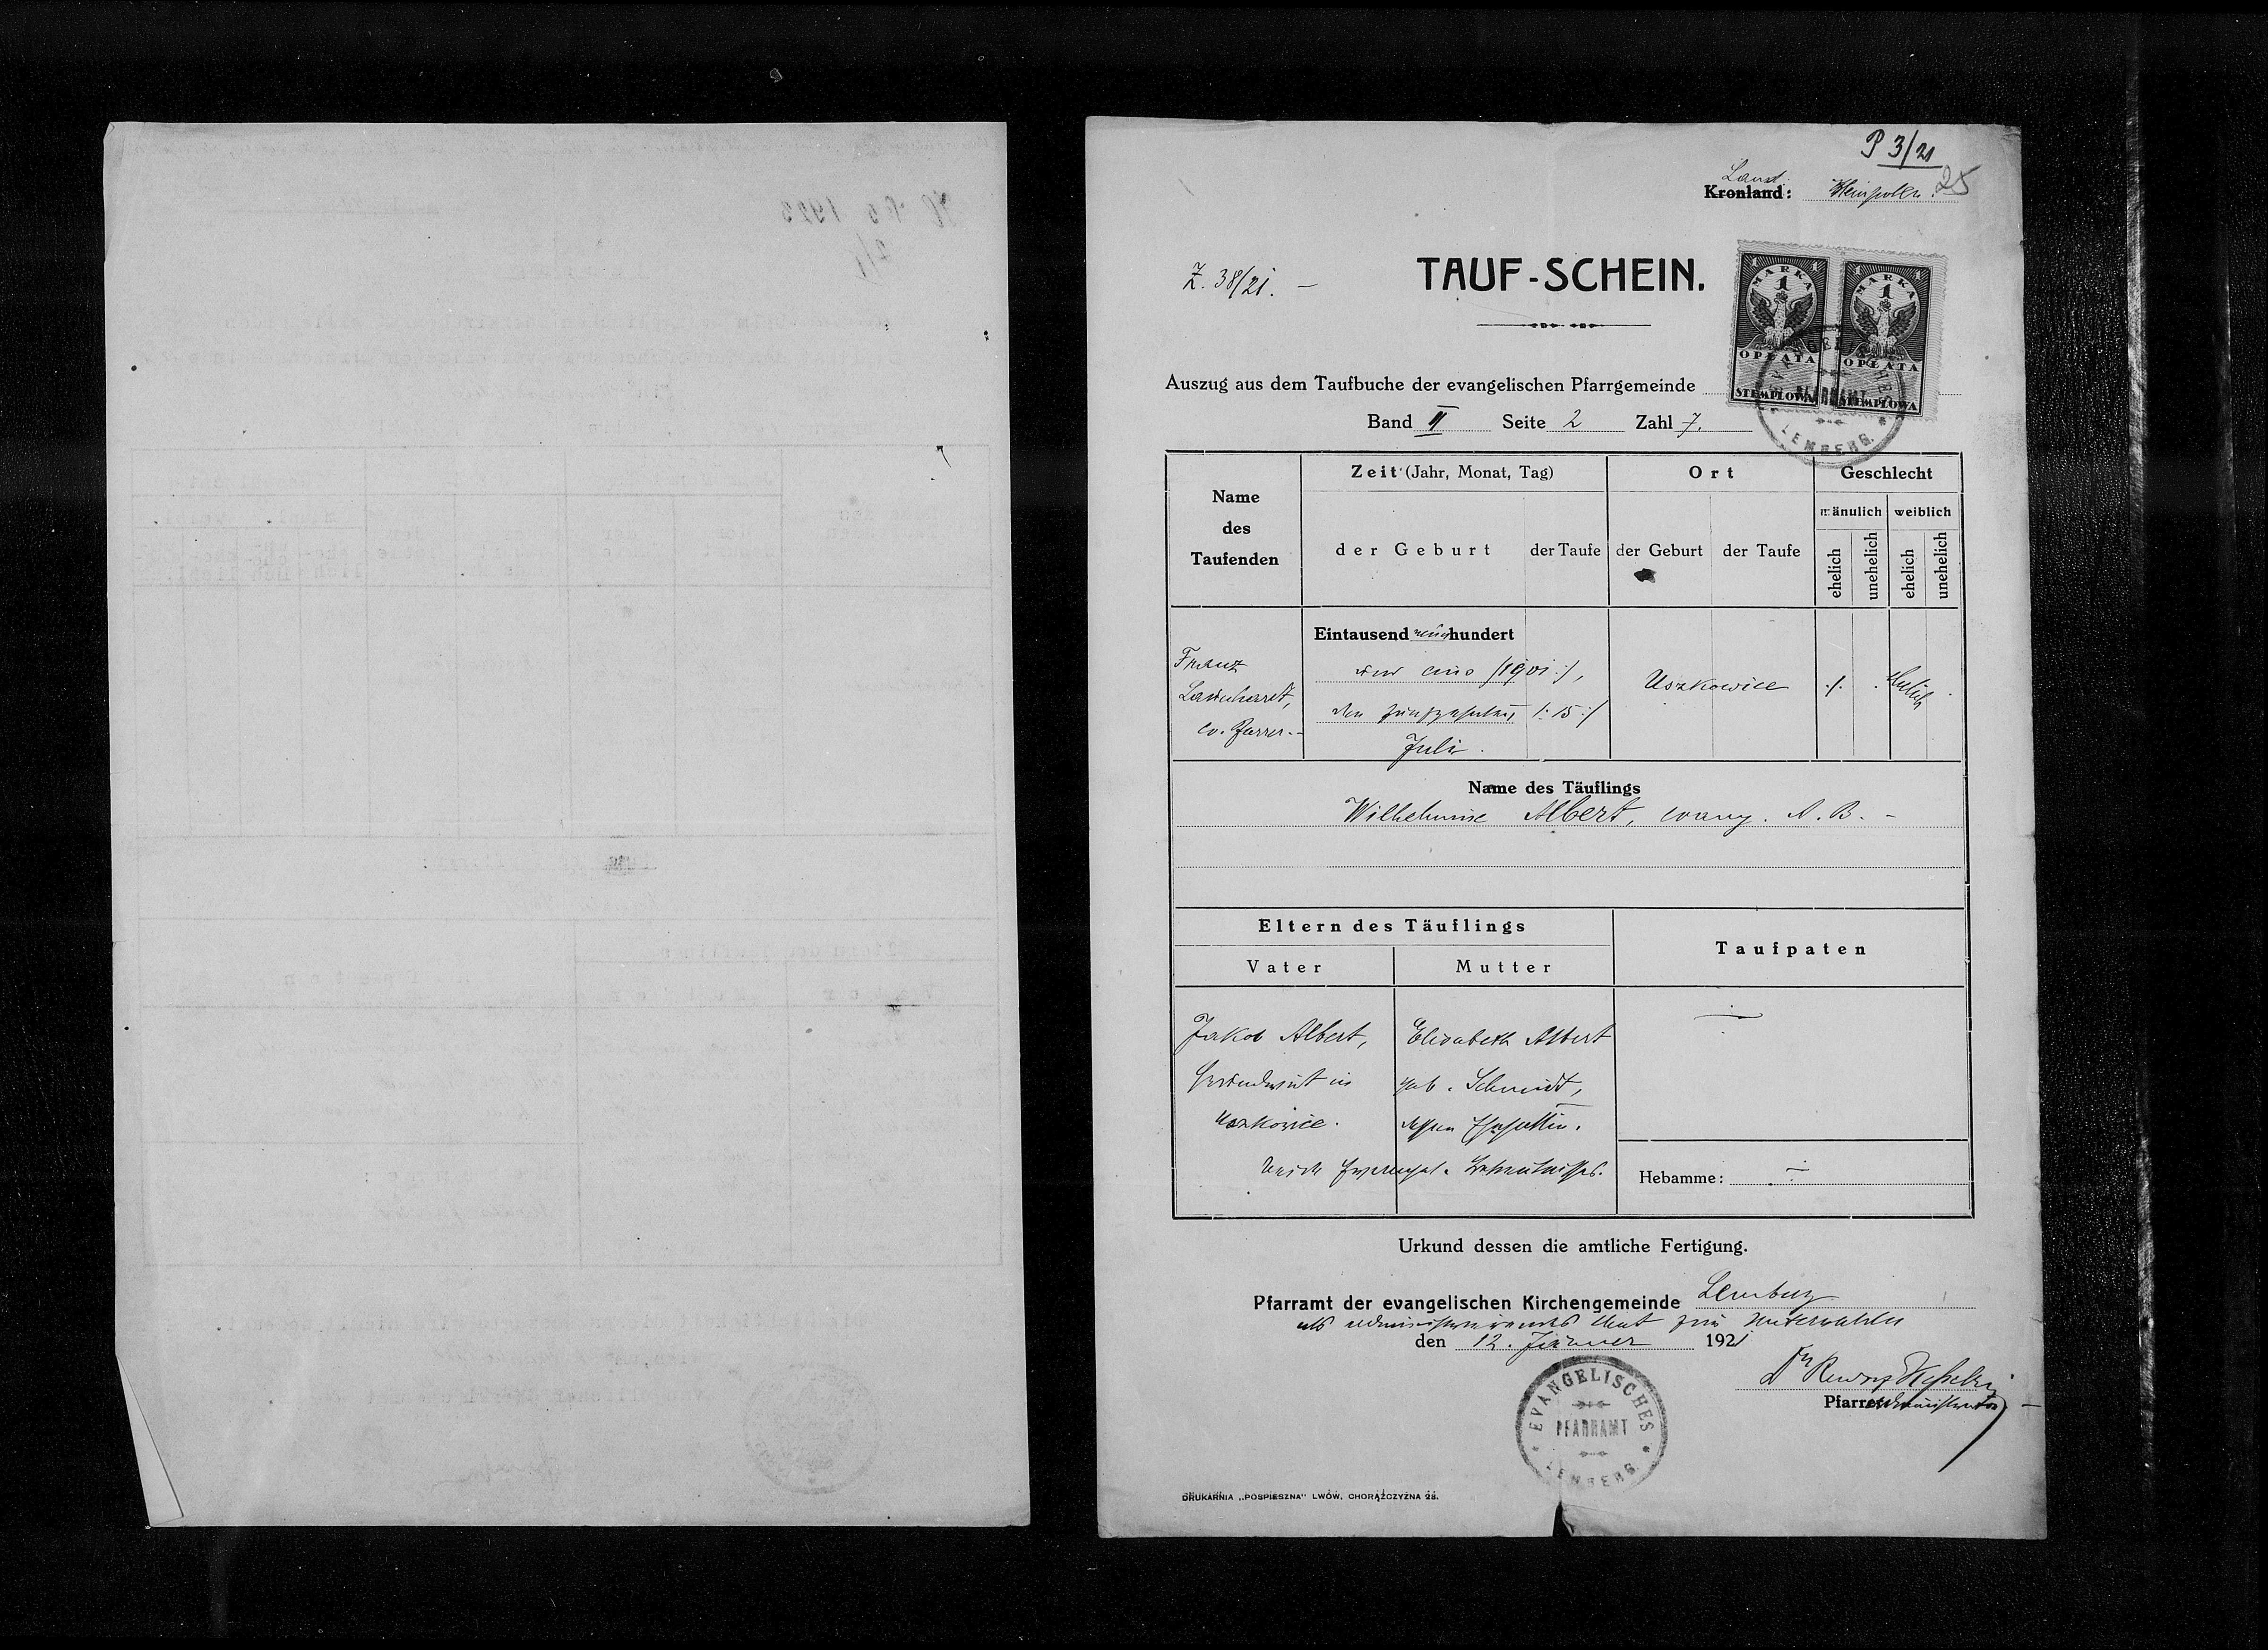 P 3/21
25
Land
Kronland: Kleinpolen
Z. 38/21. –
TAUF-SCHEIN.
1 MARKA 1
1
OPŁATA
STEMPLOWA
1 MARKA 1
1
OPŁATA
STEMPLOWA
Auszug aus dem Taufbuche der evangelischen Pfarrgemeinde
Band II Seite 2 Zahl 7.
Name des Taufenden
Zeit (Jahr, Monat, Tag)
Ort
Geschlecht
mänulich weiblich
der Geburt der Taufe der Geburt der Taufe
ehelich unehelich ehelich unehelich
Eintausend neunhundert
und eins /:1901:/,
den fünfzehnten /:15:/
Juli.
Franz
ev. Pfarrer.-
Uszkowice
./.
ehelich
Name des Täuflings
Wilhelmine Albert, evang. A. B. –
Eltern des Täuflings
Taufpaten
Vater Mutter
Jakob Albert,
Grundwirt in
Uszkowice.
Elisabeth Albert
geb. Schmidt,
dessen Ehegattin.
Beide evangel. Bekenntnisses.
Hebamme:
Urkund dessen die amtliche Fertigung.
Pfarramt der evangelischen Kirchengemeinde Lemberg
als administrierendes Amt für Unterwalden
den 12. Jänner 1921
Dr
Pfarradministrator
EVANGELISCHES
PFARRAMT
LEMBERG.
DRUKARNIA „POSPIESZNA" LWÓW, CHORĄŻCZYZNA 28.